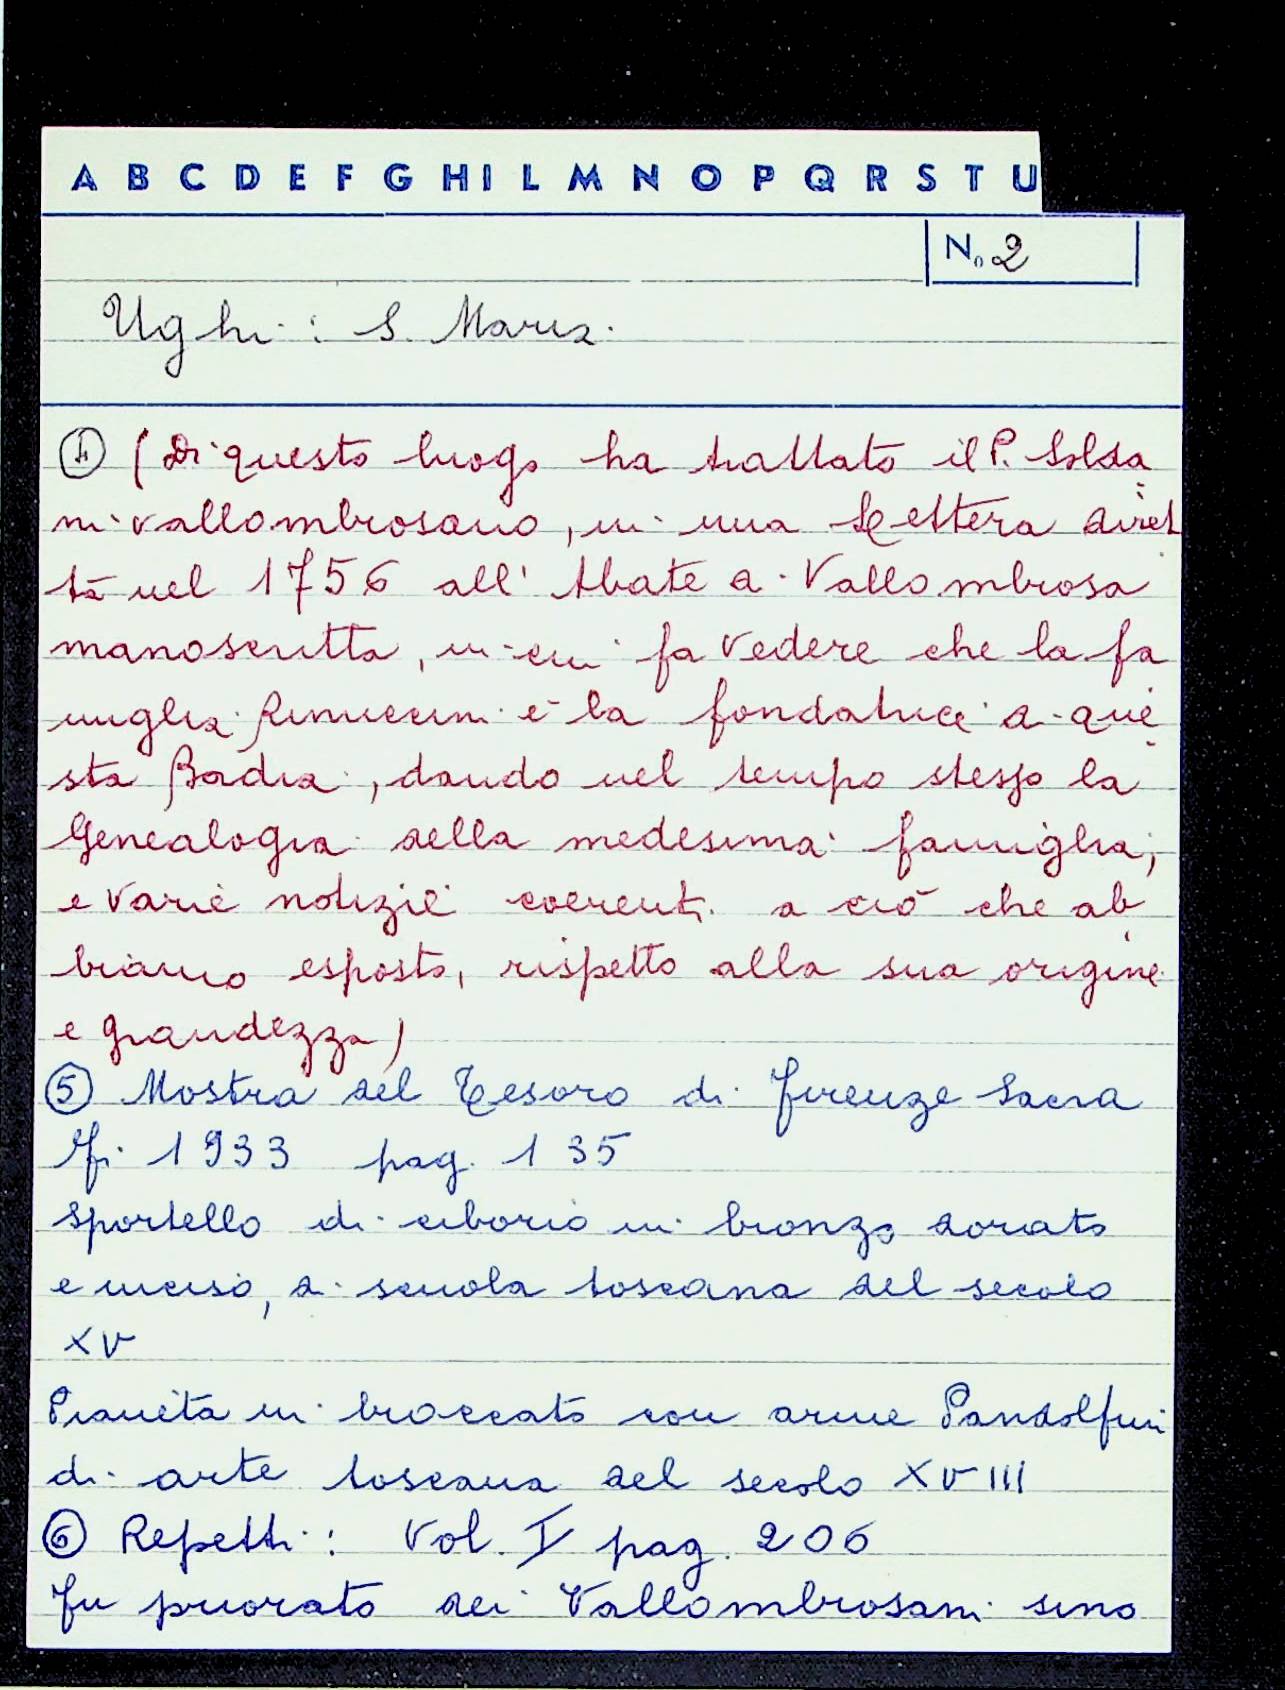 A B C D E F G H I L M N O P Q R S T U
N. 2
Ughi: S. Maria
④ (Di questo luogo ha trattato il P. Solda
ni vallombrosano, in una Lettera diret
ta nel 1756 all' Abate di Vallombrosa
manoscritta, in cui fa vedere che la fa
miglia Rinuccini è la fondatrice di que
sta Badia, dando nel tempo stesso la
Genealogia della medesima famiglia;
e varie notizie coerenti a ciò che ab
biamo esposto, rispetto alla sua origine
e grandezza)
⑤ Mostra del Tesoro di Firenze Sacra
Fi. 1933 pag. 135
Sportello di ciborio in bronzo dorato
e inciso, di scuola toscana del secolo
XV
Pianeta in broccato con arme Pandolfini
di arte toscana del secolo XVIII
⑥ Repetti: Vol. I pag. 206
Fu priorato dei Vallombrosani sino